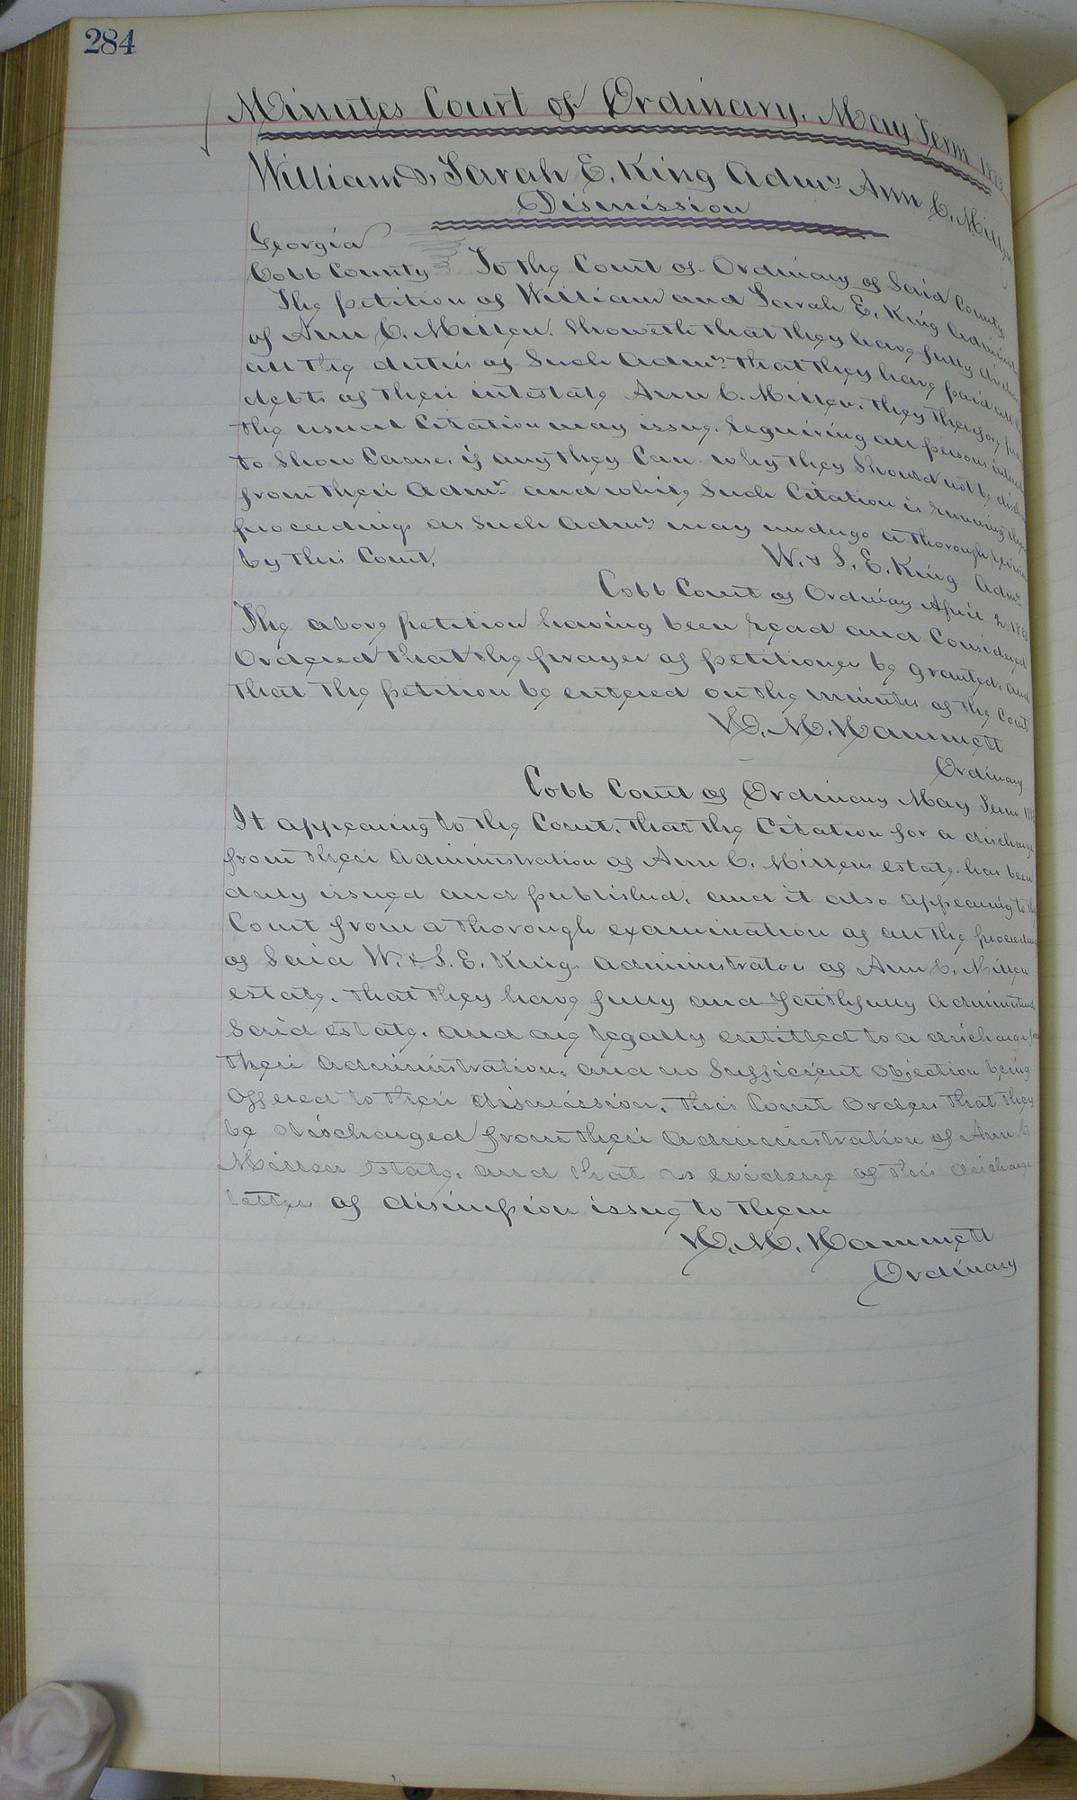 284
Minutes Court of Ordinary. May Term
William & Sarah E. King Admrs Ann C. Millen
Dismission
Georgia
Cobb County To the Court of Ordinary of Said County
The petition of William and Sarah E. King
of Ann C. Millen. Showeth that they have fully
all the duties of Such Admrs that they have paid all
debts of their intestate Ann C. Millen. they therefore
the usual Citation may issue. requiring all persons
to Show Cause. if any they Can why they Should not be
from their Admr and while Such Citation is running
proceedings as Such Admrs may undergo a thorough
by this Court. W. & S. E. King Admrs
Cobb Court of Ordinary April
The above petition having been read and Considered
Ordered that the prayer of petitioner be granted. and
that the petition be entered on the minutes of the Court
H. M. Hammett
Ordinary
Cobb Court of Ordinary May Term
It appearing to the Court. that the Citation for a discharge
from their administration of Ann C. Millens estate. has been
duly issued and published. and it also appearing to the
Court from a thorough examination of all the
of Said W. & S. E. King. administrator of Ann C. Millen
estate. that they have fully and faithfully
Said estate. and are legally entitled to a discharge
their administration. and no Sufficient objection being
offered to their dismission. this Court orders that they
be discharged from their administration of Ann C
Millen estate. and that as evidence of this discharge
letters of dismission issue to them
H. M. Hammett
Ordinary